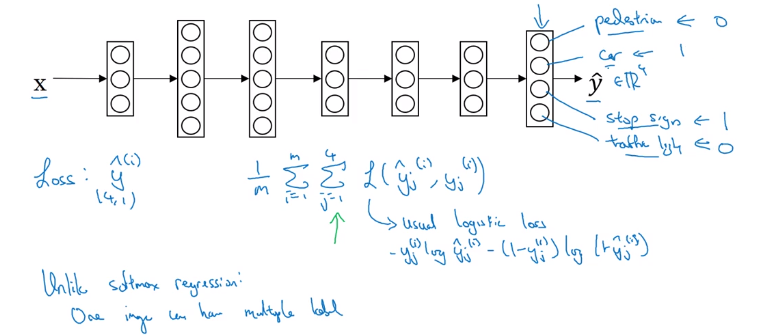 pedestrian ← 0
car ← 1
x
ŷ ∈ ℝ⁴
stop sign ← 1
traffic light ← 0
Loss: ŷ^(i) (4,1)
1/m Σ_{i=1}^{m} Σ_{j=1}^{4} L(ŷ_j^(i), y_j^(i))
usual logistic loss
- y_j^(i) log ŷ_j^(i) - (1-y_j^(i)) log (1-ŷ_j^(i))
Unlike softmax regression:
One image can have multiple label